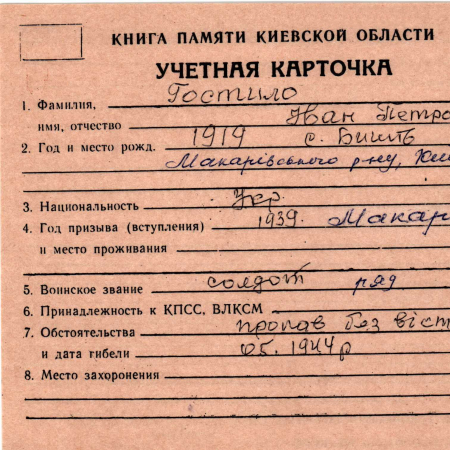 КНИГА ПАМЯТИ КИЕВСКОЙ ОБЛАСТИ
УЧЕТНАЯ КАРТОЧКА
1. Фамилия, Гостило
имя, отчество Иван Петро
2. Год и место рожд. 1919 с. Бишів
Макарівського р-ну, Киї
3. Национальность Укр.
4. Год призыва (вступления) 1939. Макар
и место проживания
5. Воинское звание солдат ряд
6. Принадлежность к КПСС, ВЛКСМ
7. Обстоятельства пропав без віст
и дата гибели 05. 1944 р
8. Место захоронения